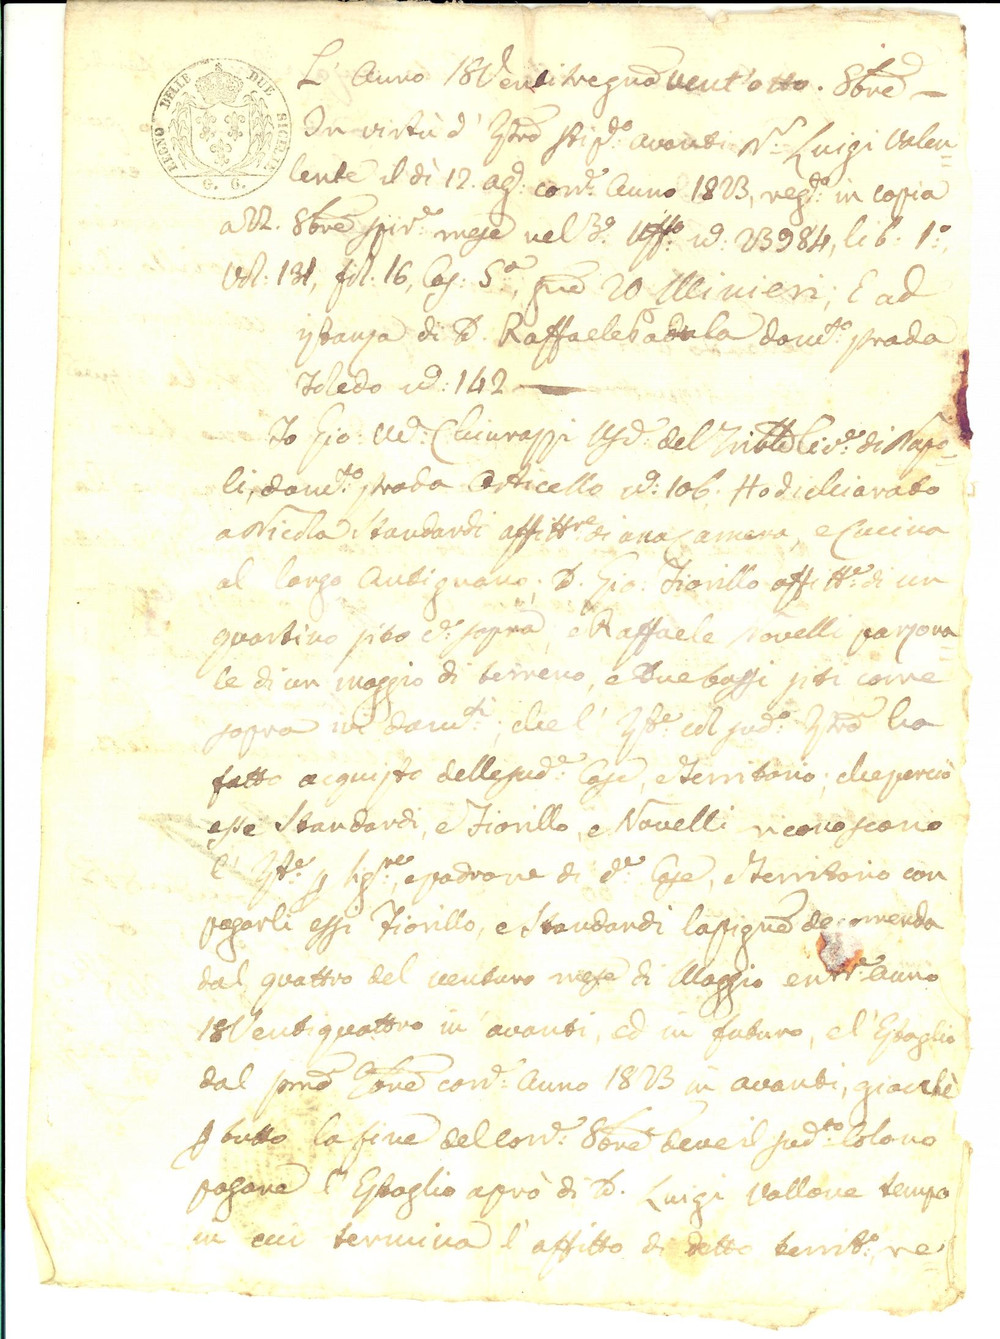 REGNO DELLE DUE SICILIE
G. 6.
L' Anno 18Ventitre giorno vent'otto. 8bre
In virtù d' Istro stip.to avanti Nr. Luigi Valen
lente il dì 12. ag.to cor.e Anno 1823, reg.to in copia
a 22. 8bre mese nel 3.o Uff.o n.o 23984, lib. 1.o,
Vol. 131, fol. 16, Cas. 5.a, grã 20 Minieri; E ad
istanza di D. Raffaele Padula dom.to strada
Toledo n.o 142
Io Gio: Us.e del Trible Civ.e di Napo
li, dom.to strada Orticello n.o 106. Ho dichiarato
a Nicola Standardi affitt.re di una Camera, e Cucina
al largo Antignano; D. Gio: Fiorillo affitt.e di un
quartino sito c.e sopra, e Raffaele Novelli parzona
le di un moggio di terreno, e due bassi siti come
sopra ivi dom.ti, che l' Ist.e col sud.o Istro ha
fatto acquisto delle sud.e Case, e Territorio, che perciò
essi Standardi, e Fiorillo, e Novelli riconoscano
l' Ist.e p sig.re, e padrone di d.e Case, e Territorio con
pagarli essi Fiorillo, e Standardi la pigne
dal quattro del venturo mese di Maggio entr.e Anno
18Ventiquattro in avanti, ed in futuro, e l' Estaglio
dal pmo 9bre cor.e Anno 1823 in avanti, giacchè
p tutto la fine del cor.e 8bre deve il sud.to Colono
pagare l' Estaglio a prò di D. Luigi Vallone tempo
in cui termina l' affitto di detto territ.o, re=